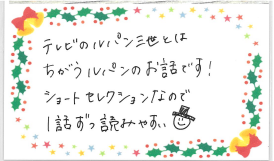 テレビのルパン三世とは
ちがうルパンのお話です!
ショートセレクションなので
1話ずつ読みやすい